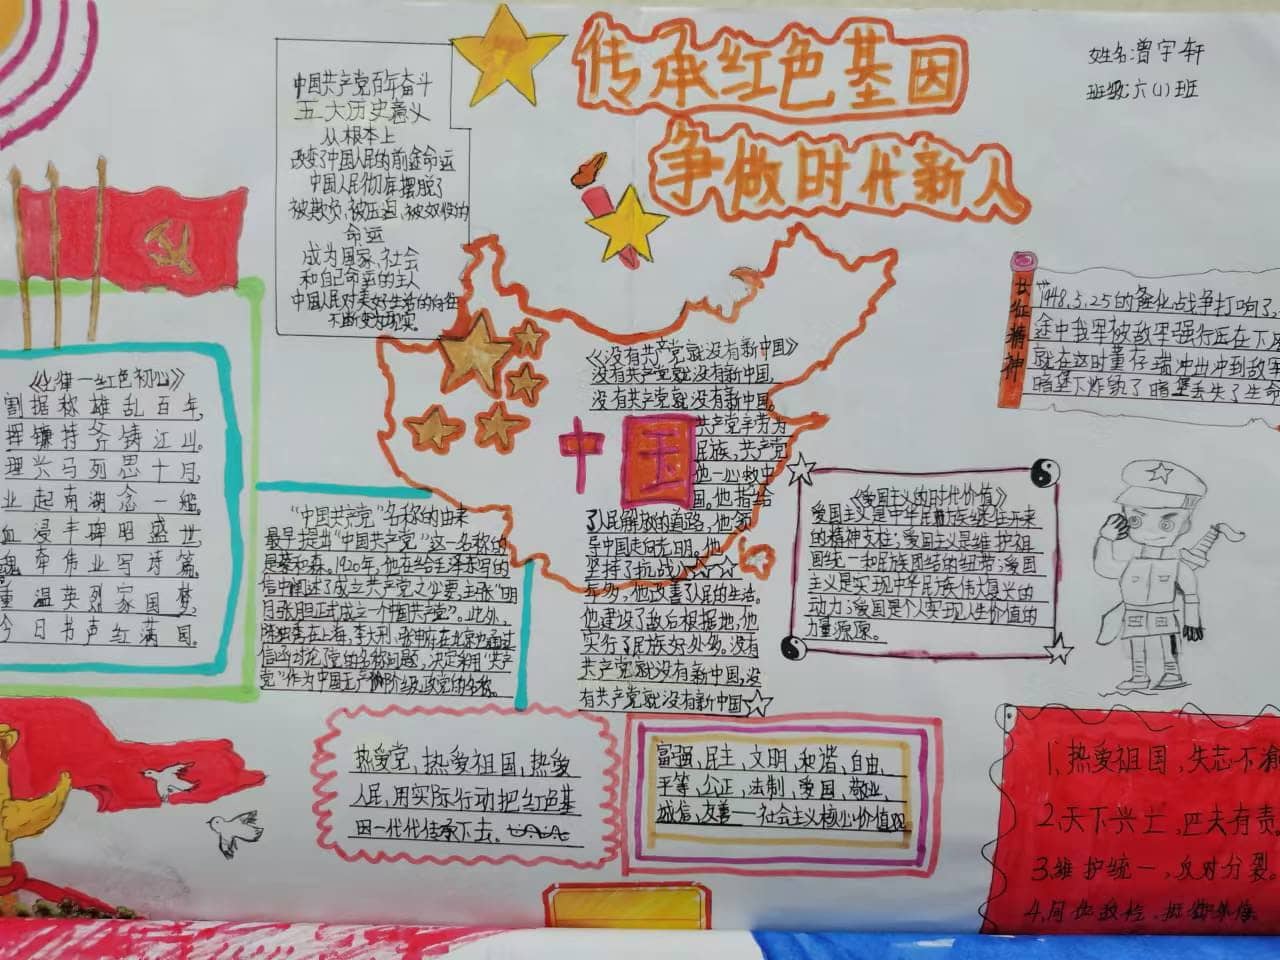 传承红色基因
争做时代新人
姓名:曾宇轩
班级:六(1)班
中国共产党百年奋斗
五大历史意义
从根本上
改变了中国人民的前途命运
中国人民彻底摆脱了
被欺负、被压迫、被奴役的
命运
成为国家、社会
和自己命运的主人
中国人民对美好生活的向往
不断变为现实。
一红色初心》
割据称雄乱百年,
挥镰持斧铸江山。
理兴马列思十月,
业起南湖念一船。
血浸丰碑昭盛世,
魂牵伟业写诗篇。
重温英烈家国梦,
今日书声红满园。
“中国共产党”名称的由来
最早提出“中国共产党”这一名称的
是蔡和森。1920年,他在给毛泽东写的
信中阐述了成立共产党之必要,主张“明
目张胆正式成立一个中国共产党”。此外,
陈独秀在上海,李大钊、张申府在北京也通过
信函讨论党的名称问题,决定采用“共产
党”作为中国无产阶级政党的名称。
《没有共产党就没有新中国》
没有共产党就没有新中国,
没有共产党就没有新中国。
共产党辛劳为
民族,共产党
他一心救中
国。他指给
了人民解放的道路,他领
导中国走向光明。他
坚持了抗战八
年多,他改善了人民的生活。
他建设了敌后根据地,他
实行了民族好处多。没有
共产党就没有新中国,没
有共产党就没有新中国
中国
长征精神
1948.5.25的隆化战争打响了,
途中我军被敌军强行压在下
就在这时董存瑞冲出冲到敌军
暗堡下炸毁了暗堡丢失了生命
《爱国主义的时代价值》
爱国主义是中华民族继往开来
的精神支柱;爱国主义是维护祖
国统一和民族团结的纽带;爱国
主义是实现中华民族伟大复兴的
动力;爱国是个人实现人生价值的
力量源原。
热爱党,热爱祖国,热爱
人民,用实际行动把红色基
因一代代传承下去。
富强、民主、文明、和谐、自由、
平等、公正、法制、爱国、敬业、
诚信、友善——社会主义核心价值观
1、热爱祖国,矢志不渝
2、天下兴亡,匹夫有责
3、维护统一,反对分裂。
4、同仇敌忾、抵御